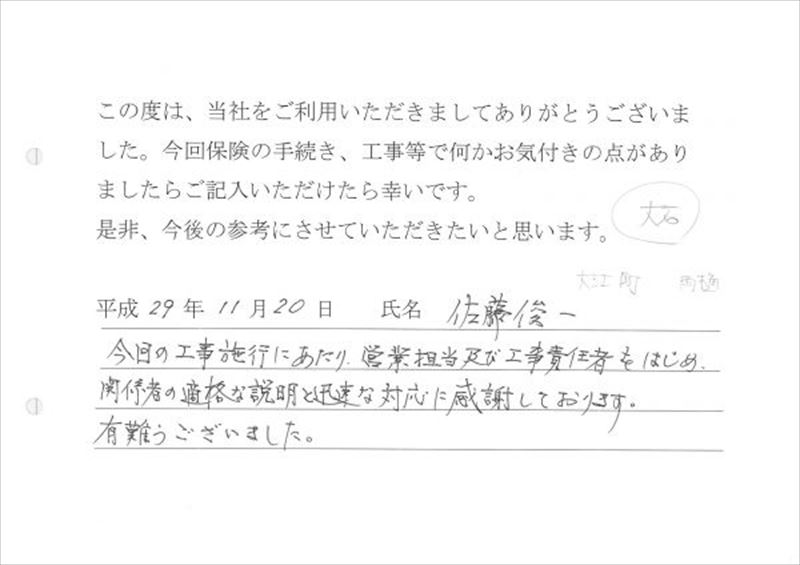 この度は、当社をご利用いただきましてありがとうございま
した。今回保険の手続き、工事等で何かお気付きの点があり
ましたらご記入いただけたら幸いです。
是非、今後の参考にさせていただきたいと思います。
大石
大江町 雨樋
平成 29 年 11 月 20 日 氏名 佐藤俊一
今回の工事施行にあたり、営業担当及び工事責任者をはじめ、
関係者の適格な説明と迅速な対応に感謝しております。
有難うございました。